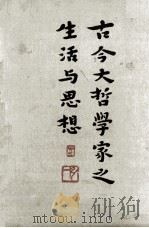 古今大哲學家之
生活与思想
www.duxiu.com